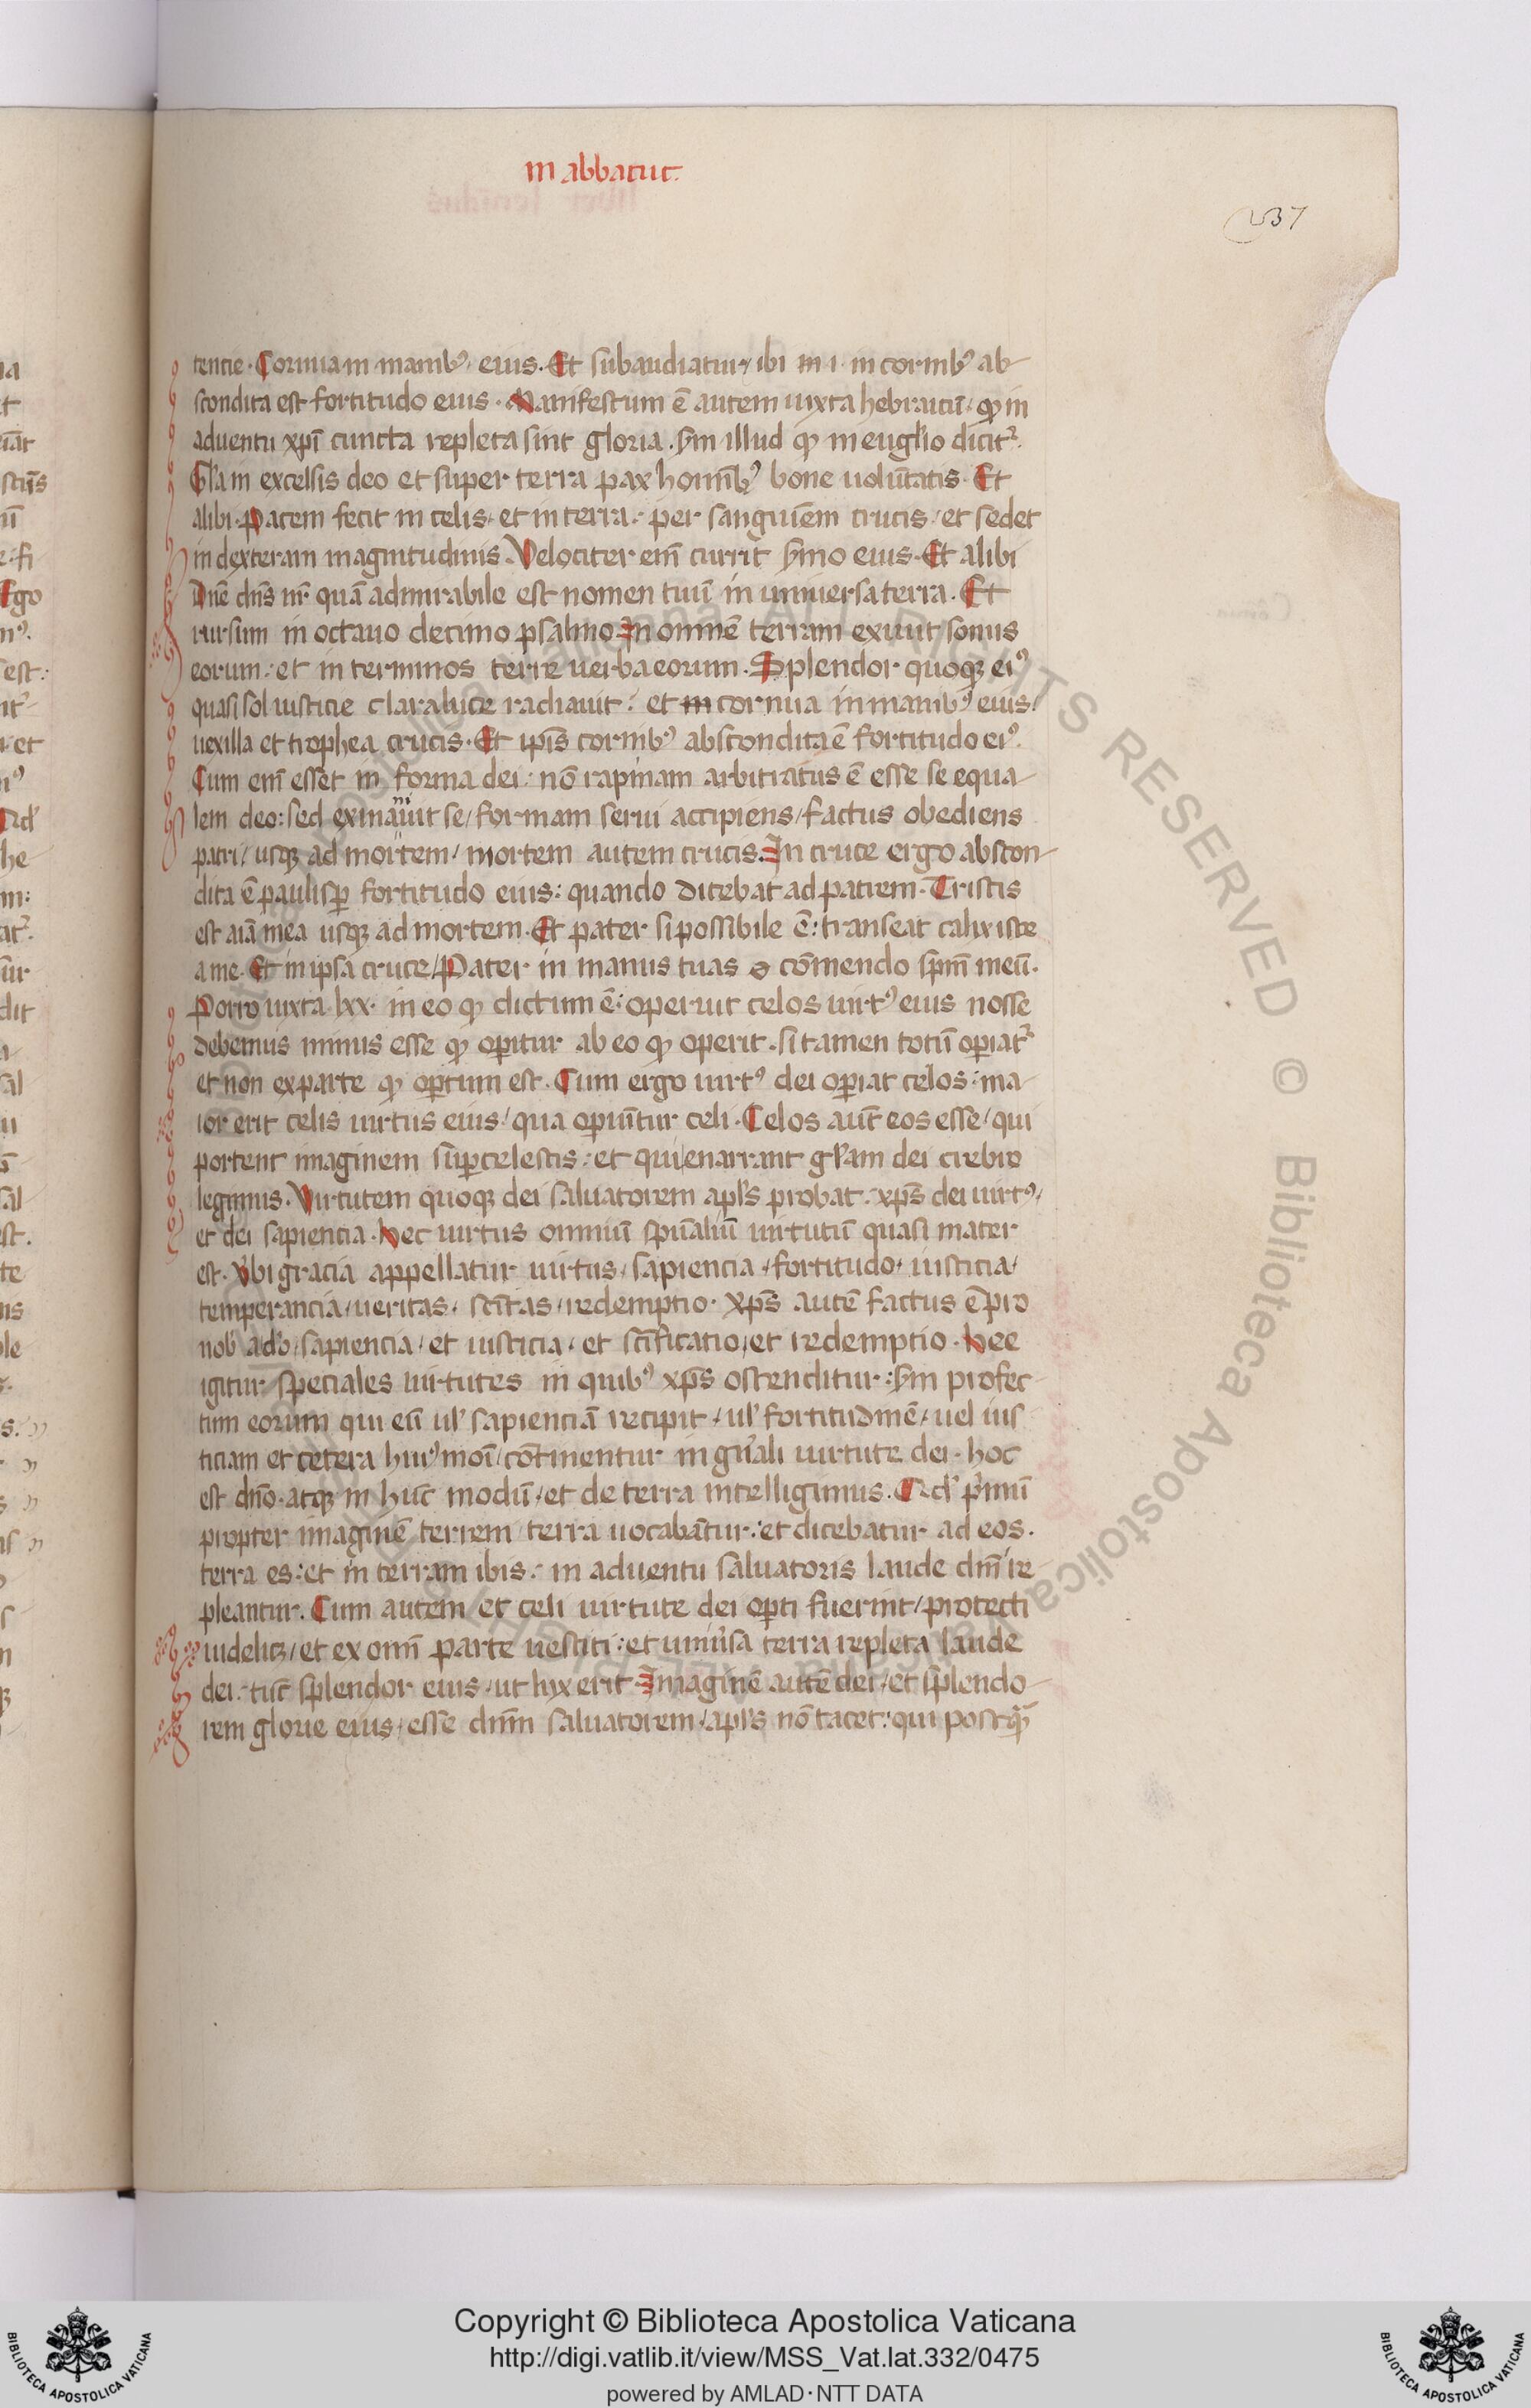 in abbacuc.
237
tencie. Cornua in manibꝰ eius. Et subaudiatur ibi .i. in cornibꝰ ab-
scondita est fortitudo eius. Manifestum ē autem iuxta hebraicū, qđ in
aduentu xp̄i cuncta repleta sint gloria. scđm illud qđ in eugl̄io dicitᷣ.
Gl̄a in excelsis deo et super terra pax hom̄ibꝰ bone uolūtatis. Et
alibi. Pacem fecit in celis, et in terra, per sanguīem crucis, et sedet
in dexteram magnitudinis. Velociter em̄ currit ẜmo eius. Et alibi
Dn̄e dn̄s nr̄ quā admirabile est nomen tuū in uniuersa terra. Et
rursum in octauo decimo psalmo. In omnē terram exiuit sonus
eorum: et in terminos terre uerba eorum. Splendor quoqꝫ eiꝰ
quasi sol iusticie clara luce radiauit: et cornua in manibꝰ eius,
uexilla et trophea crucis. Et ip̄is cornibꝰ abscondita ē fortitudo eiꝰ.
Cum em̄ esset in forma dei: nō rapinam arbitratus ē esse se equa-
lem deo: sed exinaniuit se, formam serui accipiens, factus obediens
patri, usqꝫ ad mortem, mortem autem crucis. In cruce ergo abscon-
dita ē paulisꝑ fortitudo eius: quando dicebat ad patrem. Tristis
est aīa mea usqꝫ ad mortem. Et pater si possibile ē: transeat calix iste
a me. Et in ipsa cruce, Pater in manus tuas cōmendo sp̄m meū.
Porro iuxta lxx. in eo qđ dictum ē: operuit celos uirtꝰ eius nosse
debemus minus esse qđ oꝑitur ab eo qđ operit. si tamen totū oꝑiatᷣ
et non ex parte qđ oꝑtum est. Cum ergo uirtꝰ dei oꝑiat celos: ma-
ior erit celis uirtus eius, qua oꝑiūtur celi. Celos aūt eos esse, qui
portent imaginem suꝑcelestis: et qui enarrant gl̄am dei crebro
legimus. Virtutem quoqꝫ dei saluatorem apl̄s probat. xp̄s dei uirtꝰ,
et dei sapiencia. Hec uirtus omniū spūaliū uirtutū quasi mater
est. Vbi gracia appellatur uirtus, sapiencia, fortitudo, iusticia,
temperancia, ueritas, sc̄itas, redemptio. Xp̄s autē factus ē pro
nob̄ a dō, sapiencia, et iusticia, et sc̄ificatio, et redemptio. Hee
igitur speciales uirtutes in quibꝰ xp̄s ostenditur: scđm profec-
tum eorum qui eū ul̄ sapienciā recipit, ul̄ fortitudinē, uel ius-
ticiam et cetera huiꝰmoī, cōtinentur in gn̄ali uirtute dei. hoc
est dn̄o. atqꝫ in hūc modū, et de terra intelligimus. Qd̓ p̓mū
propter imaginē terreni terra uocabātur: et dicebatur ad eos.
terra es: et in terram ibis: in aduentu saluatoris laude dn̄i re-
pleantur. Cum autem et celi uirtute dei oꝑti fuerint, protecti
uidelicꝫ, et ex om̄i parte uestiti: et uniuͥsa terra repleta laude
dei: tūc splendor eius, ut lux erit. Imaginē autē dei, et splendo-
rem glorie eius, esse dn̄m saluatorem, apl̄s nō tacet: qui postqᷓ̄
Copyright © Biblioteca Apostolica Vaticana
http://digi.vatlib.it/view/MSS_Vat.lat.332/0475
powered by AMLAD·NTT DATA